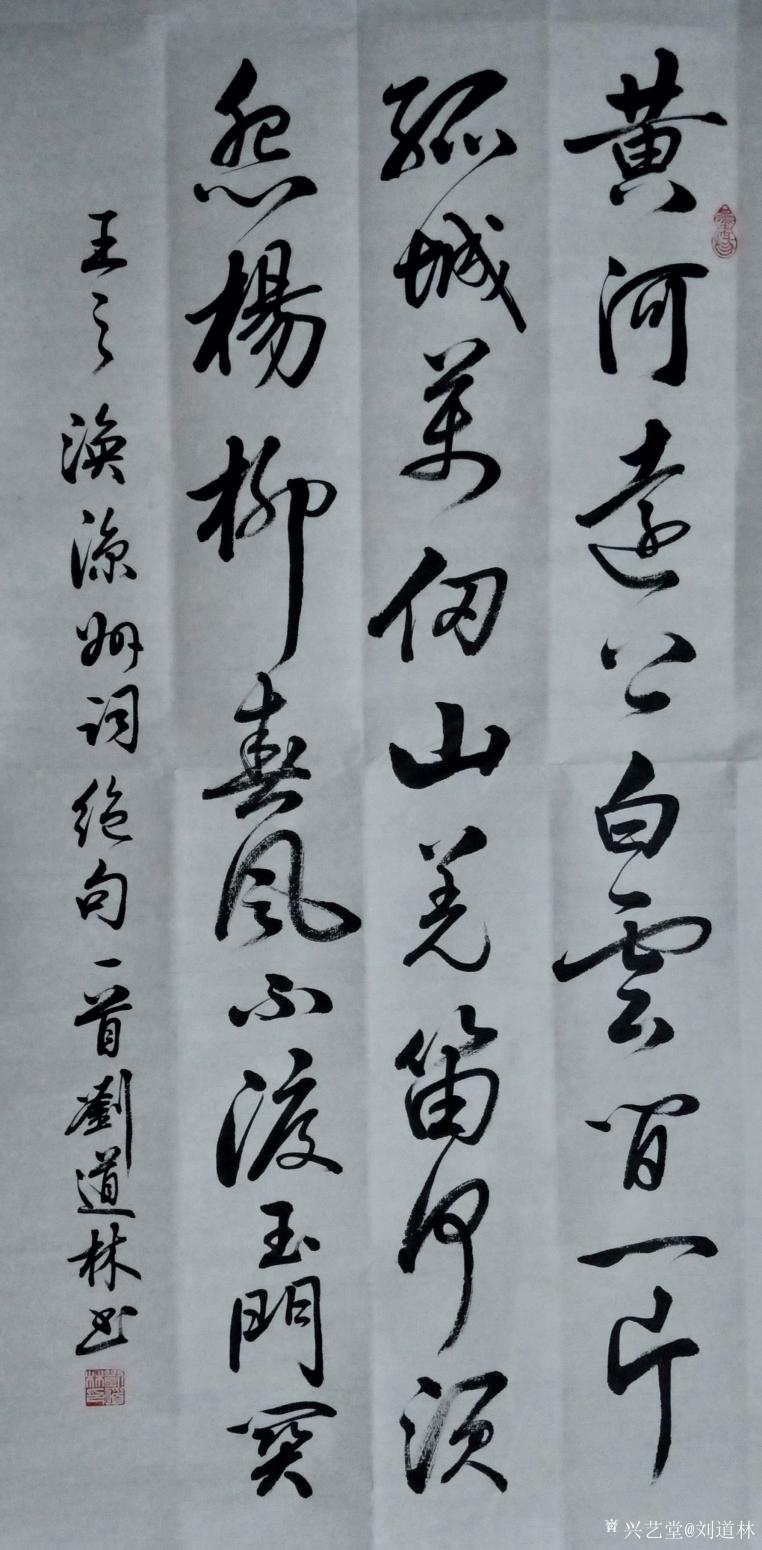 黄河遠上白雲間一片
孤城萬仞山羌笛何須
怨楊柳春風不渡玉門関
王之渙涼州詞絶句一首劉道林书
兴艺堂@刘道林